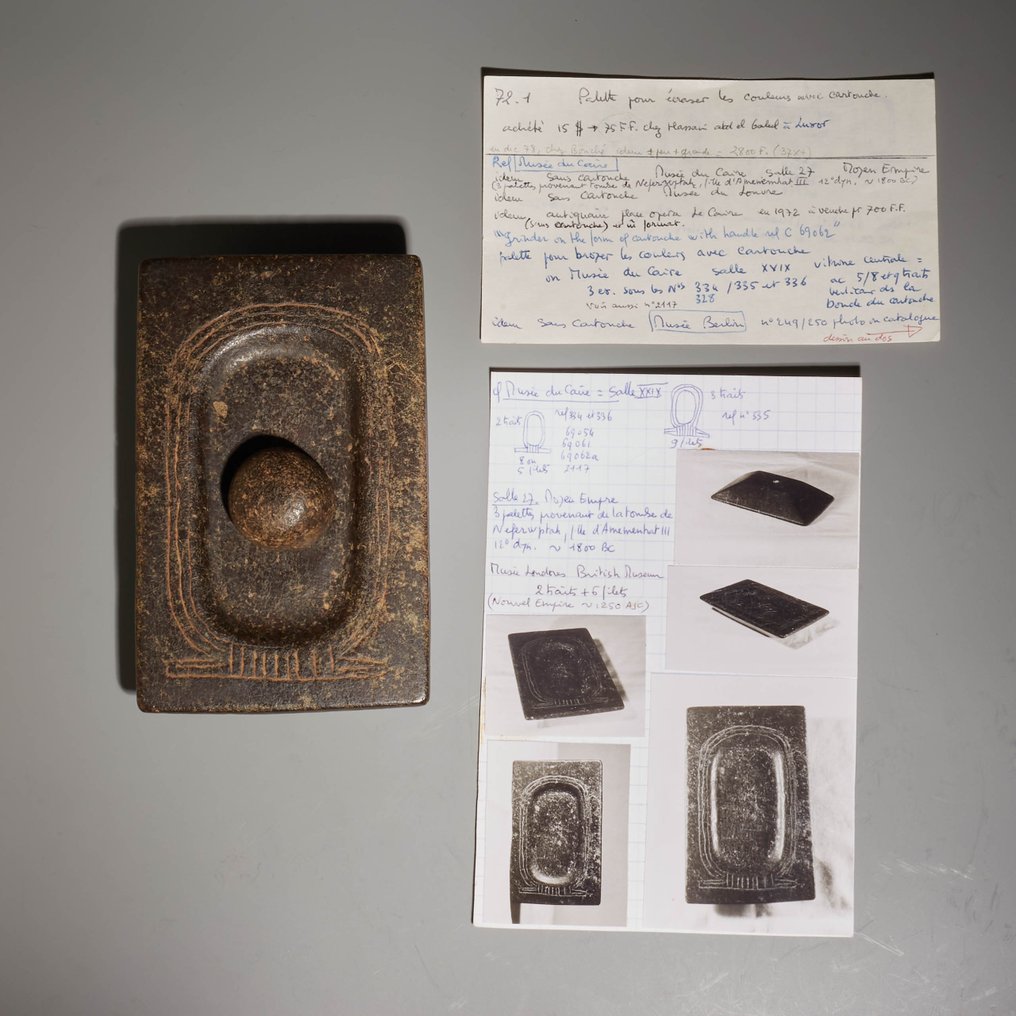 72.1 Palette pour écraser les couleurs avec cartouche.
acheté 15 $ → 75 F.F. chez Hassani abd el Galil à Luxor
en déc 78, chez idem + grande = 2800 F.
Ref Musée du Caire
idem sans cartouche Musée du Caire salle 27 Moyen Empire
(3 palettes provenant tombe de Neferwptah, fille d'Amenemhat III 12° dyn. ~ 1800 BC)
idem sans cartouche Musée du Louvre
idem, antiquaire place opera Le Caire en 1972 à vendre pr 700 F.F.
(sans cartouche) et m format.
"Grinder on the form of cartouche with handle ref C 69062"
palette pour broyer les couleurs avec cartouche
on Musée du Caire salle XXIX vitrine centrale =
3 ex. sous les Nos 334 / 335 et 336 ac 5/8 et 9 traits
328 verticaux ds la
voir aussi n° 2117 boucle du cartouche
idem sans cartouche Musée Berlin n° 249/250 photo on catalogue
dessin au dos
cf Musée du Caire = Salle XXIX
2 traits ref 334 et 336 3 traits
69054 ref n° 335
69061
8 ou 69062a 9 filets
5 filets 2117
Salle 27. Moyen Empire
3 palettes provenant de la tombe de
Neferwptah, fille d'Amemembat III
12° dyn. ~ 1800 BC
Musée Londres British Museum
2 traits + 6 filets
(Nouvel Empire ~ 1250 AJC)